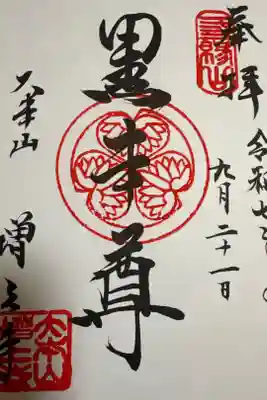 奉拝
令和七年
九月二十一日
黒本尊
大本山
増上寺
三縁山